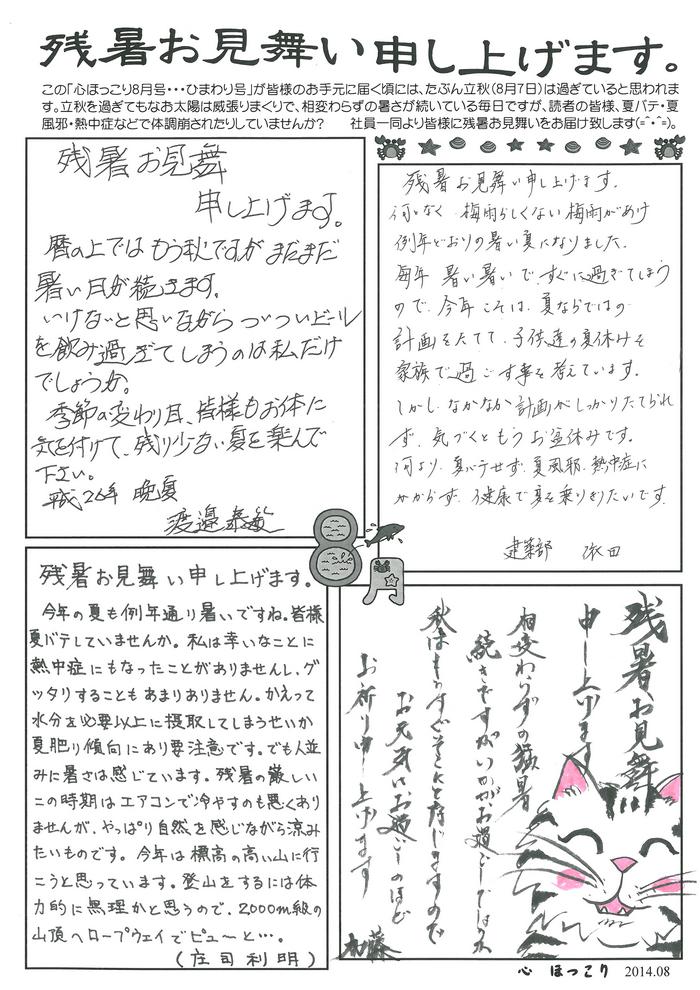 残暑お見舞い申し上げます。
この「心ほっこり8月号・・・ひまわり号」が皆様のお手元に届く頃には、たぶん立秋(8月7日)は過ぎていると思われま
す。立秋を過ぎてもなお太陽は威張りまくりで、相変わらずの暑さが続いている毎日ですが、読者の皆様、夏バテ・夏
風邪・熱中症などで体調崩されたりしていませんか？　社員一同より皆様に残暑お見舞いをお届け致します(=^・^=)。
残暑お見舞
申し上げます。
暦の上ではもう秋ですがまだまだ
暑い日が続きます。
いけないと思いながらついついビール
を飲み過ぎてしまうのは私だけ
でしょうか。
季節の変わり目、皆様もお体に
気を付けて、残り少ない夏を楽んで
下さい。
平成26年 晩夏
渡邉泰敏
残暑お見舞い申し上げます。
何となく 梅雨らしくない梅雨があけ
例年どおりの暑い夏になりました。
毎年 暑い暑いで、すぐに過ぎてしまう
ので、今年こそは、夏ならではの
計画をたてて、子供達の夏休みを
家族で過ごす事を考えています。
しかし なかなか計画がしっかりたてられ
ず、気づくともうお盆休みです。
何より、夏バテせず、夏風邪、熱中症に
かからず、健康で夏を乗りきりたいです。
建築部 依田
8月
残暑お見舞い申し上げます。
今年の夏も例年通り暑いですね。皆様
夏バテしていませんか。私は幸いなことに
熱中症にもなったことがありませんし、グ
ッタリすることもあまりありません。かえって
水分を必要以上に摂取してしまうせいか
夏肥り傾向にあり要注意です。でも人並
みに暑さは感じています。残暑の厳しい
この時期はエアコンで冷やすのも悪くあり
ませんが、やっぱり自然を感じながら涼み
たいものです。今年は標高の高い山に行
こうと思っています。登山をするには体
力的に無理かと思うので、2000m級の
山頂へロープウェイでビューと…。
(庄司利明)
残暑お見舞
申し上げます
相変わらずの猛暑
続きですがいかがお過ごしでしょうか
秋はもうすぐそこにと存じますので
お元気にお過ごしのほど
お祈り申し上げます
加藤
心 ほっこり 2014.08